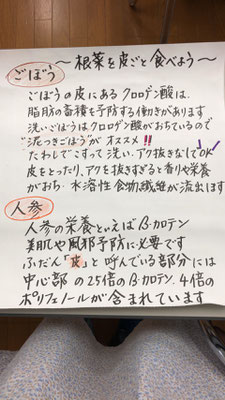 ～根菜を皮ごと食べよう～
ごぼう
ごぼうの皮にあるクロロゲン酸は、
脂肪の蓄積を予防する働きがあります
洗いごぼうはクロロゲン酸がおちているので
"泥つきごぼう"がオススメ!!
たわしでこすって洗い、アク抜きなしでOK
皮をとったり、アクを抜きすぎると香りや栄養
がおち、水溶性食物繊維が流出します
人参
人参の栄養といえばβ-カロテン
美肌や風邪予防に必要です
ふだん「皮」と呼んでいる部分には
中心部の2.5倍のβ-カロテン、4倍の
ポリフェノールが含まれています